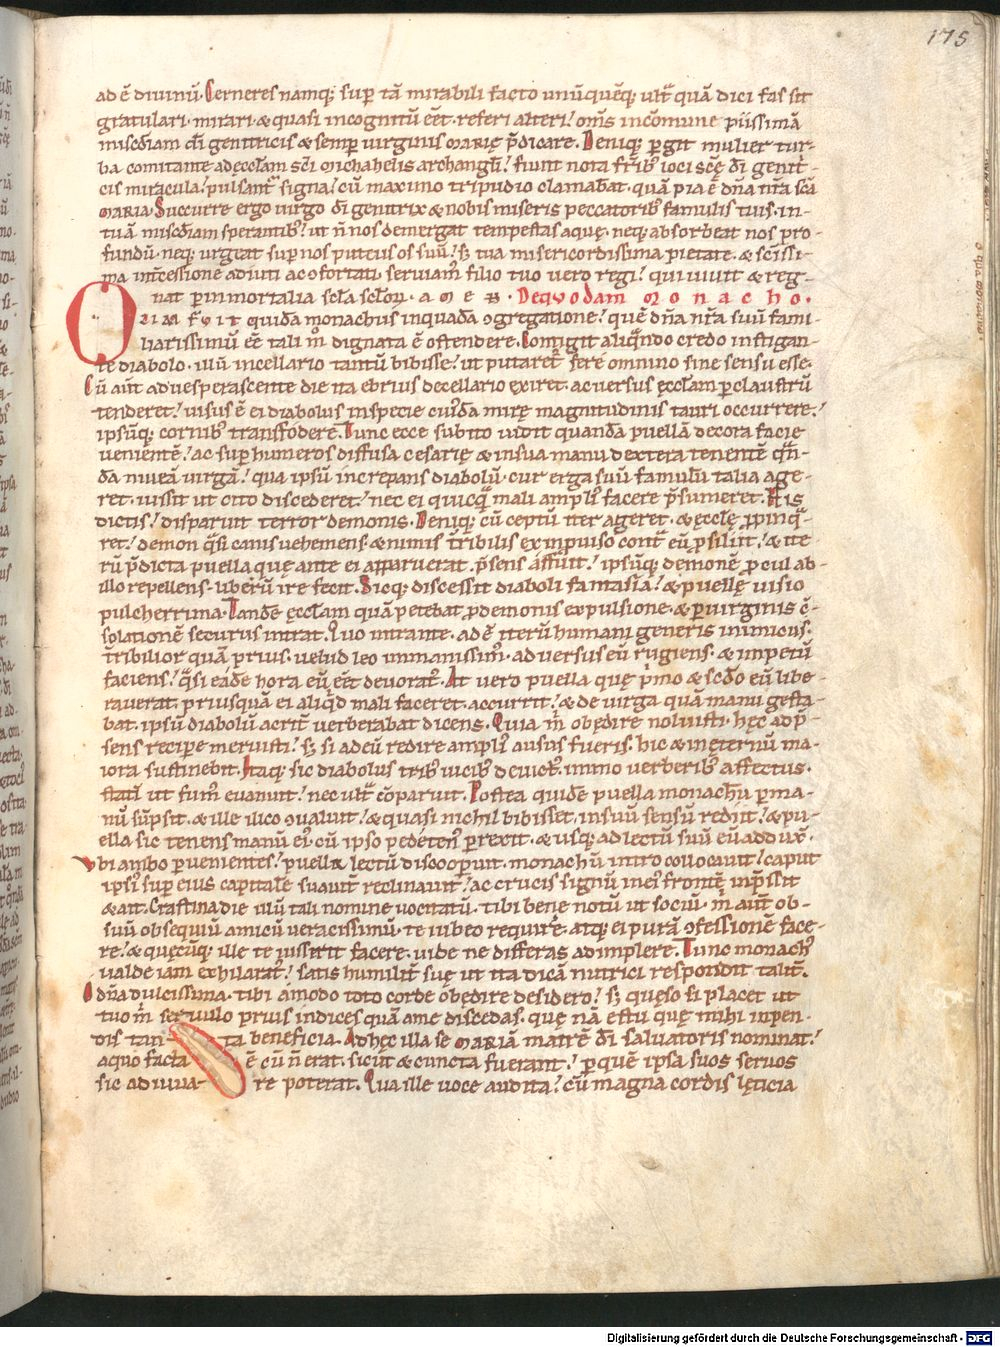 175
ad ē divinū. Cerneres namq; sup tā mirabili facto unūquēq; ult quā dici fas sit
gratulari. mirari. & quasi incognitū eēt. referi alteri. om̄s incōmune piissimā
miscdiam di genitricis & semp virginis MARIĘ p̄dicare. Deniq; pgit mulier tur-
ba comitante ad ęccłam sc̄i Michahelis archangłi. fiunt nota fr̄ib; loci scę di genit-
cis miracula. pulsant signa. cū maximo tripudio clamabat. quā pia ē dn̄a nr̄a sc̄a
MARIA. Succurre ergo virgo di genitrix & nobis miseris peccatorib; famulis tuis. in-
tuā miscdiam sperantib;. ut n̄ nos demergat tempestas aquę. neq; absorbeat nos pro-
fundū. neq; urgeat sup nos puteus os suū. s; tua misericordissima pietate. & scissi-
ma int̄cessione adiuti ac ɔfortati. serviam' filio tuo vero regi. qui vivit & reg-
nat p immortalia scła scłou. AMEN. De quodam Monacho.
OLIM FUIT quidā monachus in quadā ɔgregatione. quē dn̄a nr̄a suū fami-
liarissimū eē tali m° dignata ē ostendere. Contigit aliqn̄do credo instigan-
te diabolo. illū in cellario tantū bibisse. ut putaret fere omnino sine sensu esse.
Cū aut̄ advesperascente die ita ebrius de cellario exiret. ac versus ęccłam p claustrū
tenderet. visus ē ei diabolus in specie cui'dā mirę magnitudinis tauri occurrere.
ipsūq; cornib; transfoderē. Tunc ecce subito vidit quandā puellā decora facie
venientē. ac sup humeros diffusa cesarię & in sua manu dextera tenentē qn̄-
dā niveā virgā. qua ipsū increpans diabolū. cur erga suū famulū talia age-
ret. iussit ut cito discederet. nec ei quicq̄ mali ampl' facere p̄sumeret. His
dictis. disparuit terror demonis. Deniq; cū ceptū iter ageret. & ęccłę ppinq̄-
ret. demon q̄si canis vehemens & nimis tribilis ex inpviso cont̄ eū psiliit. & ite-
rū p̄dicta puella quę ante ei apparuerat. p̄sens affuit. ipsūq; demonē pcul ab-
illo repellens. liberū ire fecit. Sicq; discessit diaboli fantasia. & puellę visio
pulcherrima. Tandē ęccłam quā petebat p demonis expulsione. & p virginis ɔ̄-
solationē securus intrat. Quo intrante. ad ē iterū humani generis inimicus.
tribilior quā prius. velud leo immanissim'. adversus eū rugiens. & impetū
faciens. q̄si eadē hora eū eēt devorat. At vero puella quę p̄mo & sc̄do eū libe-
raverat. priusquā ei aliq̄d mali faceret. accurrit. & de virga quā manu gesta-
bat. ipsū diabolū acrit verberabat dicens. Quia m̄ obędire noluisti. hęc ad p̄-
sens recipere meruisti. s; si ad eū redire ampl' ausus fueris. hic & in ęternū ma-
iora sustinebis. Itaq; sic diabolus trib; vicib; devict'. immo verberib; affectus.
statī ut fum' evanuit. nec ult cōparuit. Postea quidē puella monachū p ma-
nū sūpsit. & ille ilico ɔvaluit. & quasi nichil bibisset. in suū sensū rediit. & pu-
ella sic tenens manū ei'. cū ipso pedetentī prexit. & usq; ad lectū suū eū addux̄.
Ubi ambo pvenientes. puella lectū discoopuit. monachū intro collocavit. caput
ipsi' sup eius capitale suavit reclinavit. ac crucis signū in ei' frontē inp̄ssit
& ait. Crastina die illū tali nomine vocitatū. tibi bene notū ut sociū. m̄ aut̄ ob-
suū obsequiū amicū veracissimū. te iubeo requirē. atq; ei purā ɔfessionē face-
re. & quęcūq; ille te iusserit facere. vide ne differas adimplere. Tunc monach'
valde iam exhilarat'. satis humilit suę ut ita dicā nutrici respondit talit.
O dn̄a dulcissima. tibi amodo toto corde obędire desidero. s; quęso si placet ut
tuo m̄ servulo prius indices quā a me discedas. quę nā es tu quę mihi inpen-
dis tan- ta beneficia. Ad hęc illa se MARIĀ matrē di salvatoris nominat.
a quo facta ē cū n̄ erat. sicut & cuncta fuerant. p quē ipsa suos servos
sic adiuva- re poterat. Qua ille voce audita. cū magna cordis lęticia
Digitalisierung gefördert durch die Deutsche Forschungsgemeinschaft - DFG